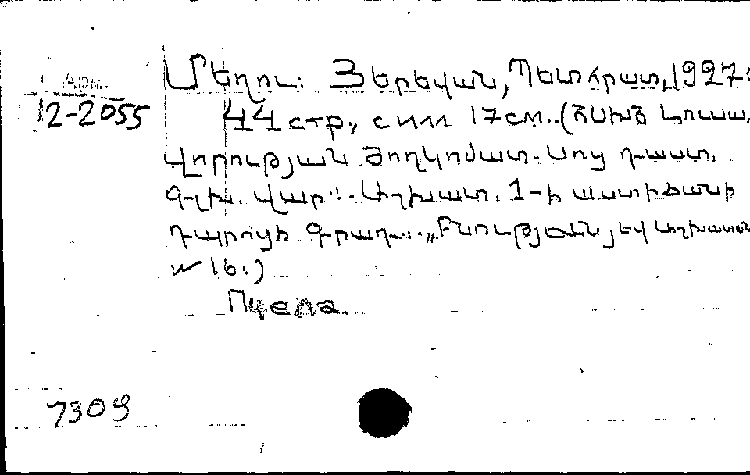 Մեղու: Յերեվան, Պետհրատ, 1927:
Арм.
12-2055
44 стр., с илл 17 см. (ՃՍԽՃ Լուսա.
վորության Ժողկոմատ. Սոց դաստ.
Գլխ. վարչ. Աշխատ. 1-ի աստիճանի
դպրոցի Գրադ.: „Բնություն յեվ աշխատանք
№ 16.)
Пчела
7309